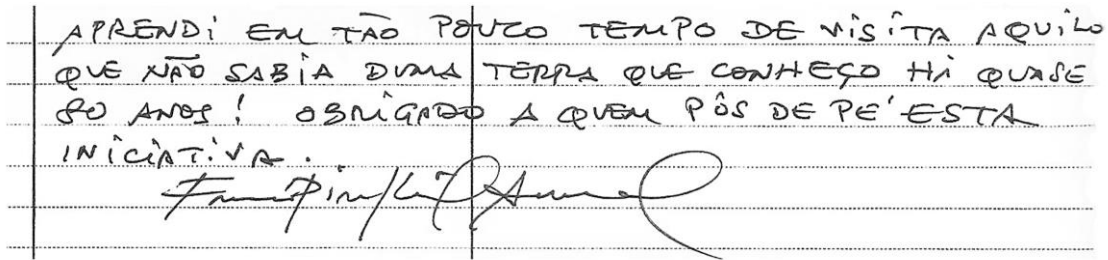 APRENDI EM TÃO POUCO TEMPO DE VISITA AQUILO
QUE NÃO SABIA DUMA TERRA QUE CONHEÇO HÁ QUASE
80 ANOS! OBRIGADO A QUEM PÔS DE PÉ ESTA
INICIATIVA.